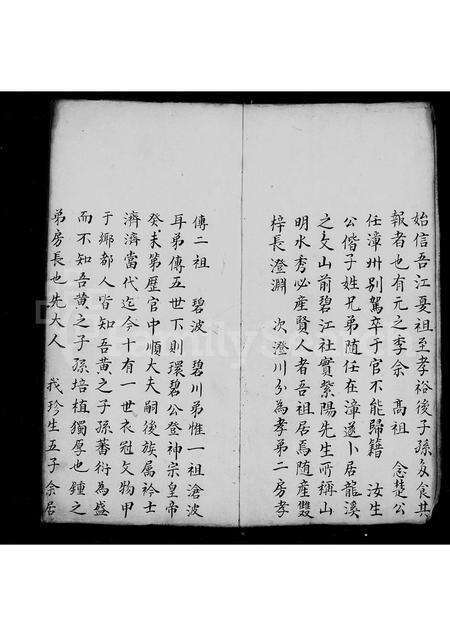 始信吾江夏祖至孝裕後子孫食其
報者也有元之季余 高祖 念楚公
任漳州別駕卒于官不能歸籍 汝生
公偕子姓兄弟隨任在漳遂卜居龍溪
之文山前碧江社實紫陽先生所稱山
明水秀必產賢人者吾祖居焉隨產雙
梓長澄淵 次澄川分為孝第二房孝
傳二祖 碧波 碧川弟惟一祖滄波
耳弟傳五世下則環碧公登神宗皇帝
癸未第歷官中順大夫嗣後族属衿士
濟濟當代迄今十有一世衣冠文物甲
于鄉都人皆知吾黃之子孫蕃衍為盛
而不知吾黃之子孫培植獨厚也鍾之
弟房長也先大人 我珍生五子余居